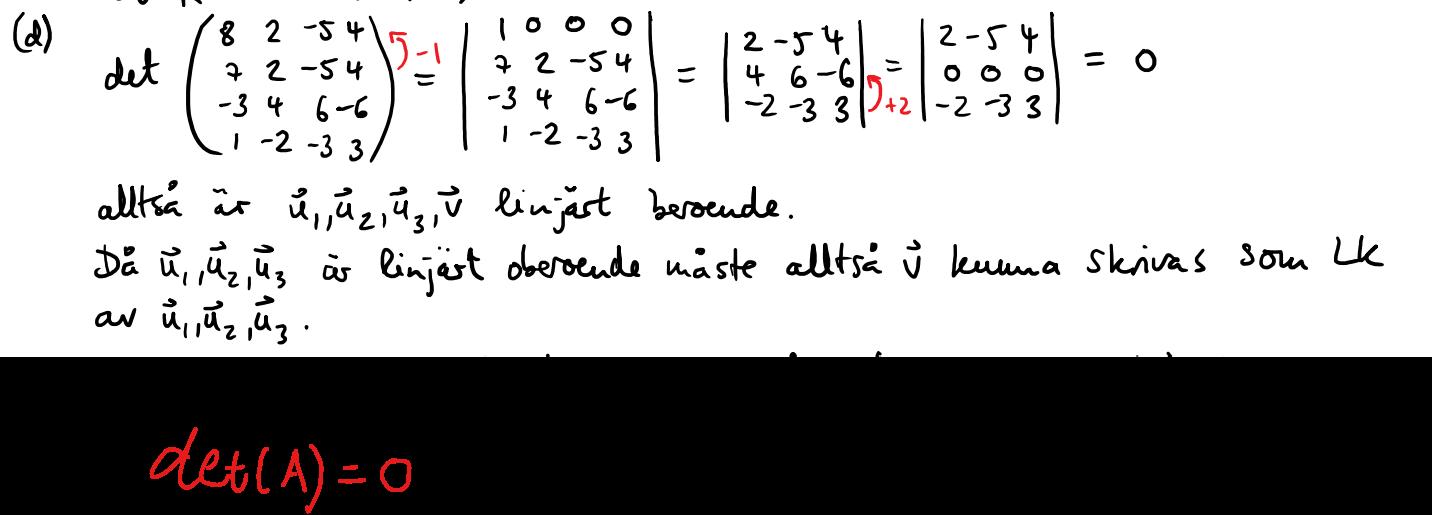 (d) det (8 2 -5 4 / 7 2 -5 4 / -3 4 6 -6 / 1 -2 -3 3) -1 = |1 0 0 0 / 7 2 -5 4 / -3 4 6 -6 / 1 -2 -3 3| = |2 -5 4 / 4 6 -6 / -2 -3 3| +2 = |2 -5 4 / 0 0 0 / -2 -3 3| = 0
alltså är u⃗₁, u⃗₂, u⃗₃, v⃗ linjärt beroende.
Då u⃗₁, u⃗₂, u⃗₃ är linjärt oberoende måste alltså v⃗ kunna skrivas som LK
av u⃗₁, u⃗₂, u⃗₃.
det(A) = 0